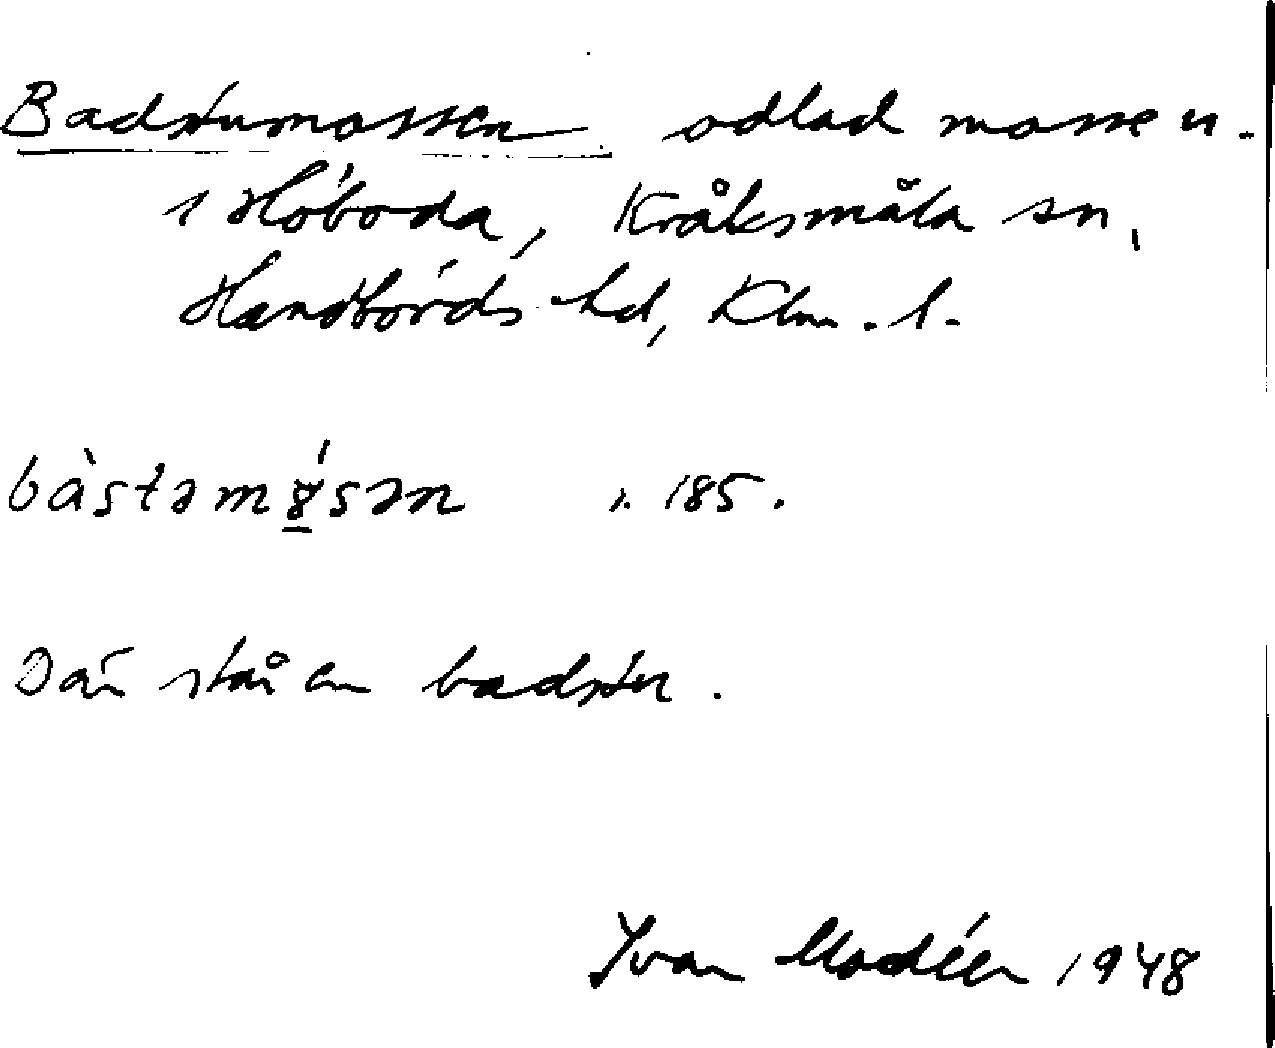 Badstumossen odlad mosse u.
i Höboda, Kråksmåla sn,
Handbörds hd, Klm. l.
bàstəmɣ́sən s. 185.
Där står en badstu.
Ivar Modéer 1948